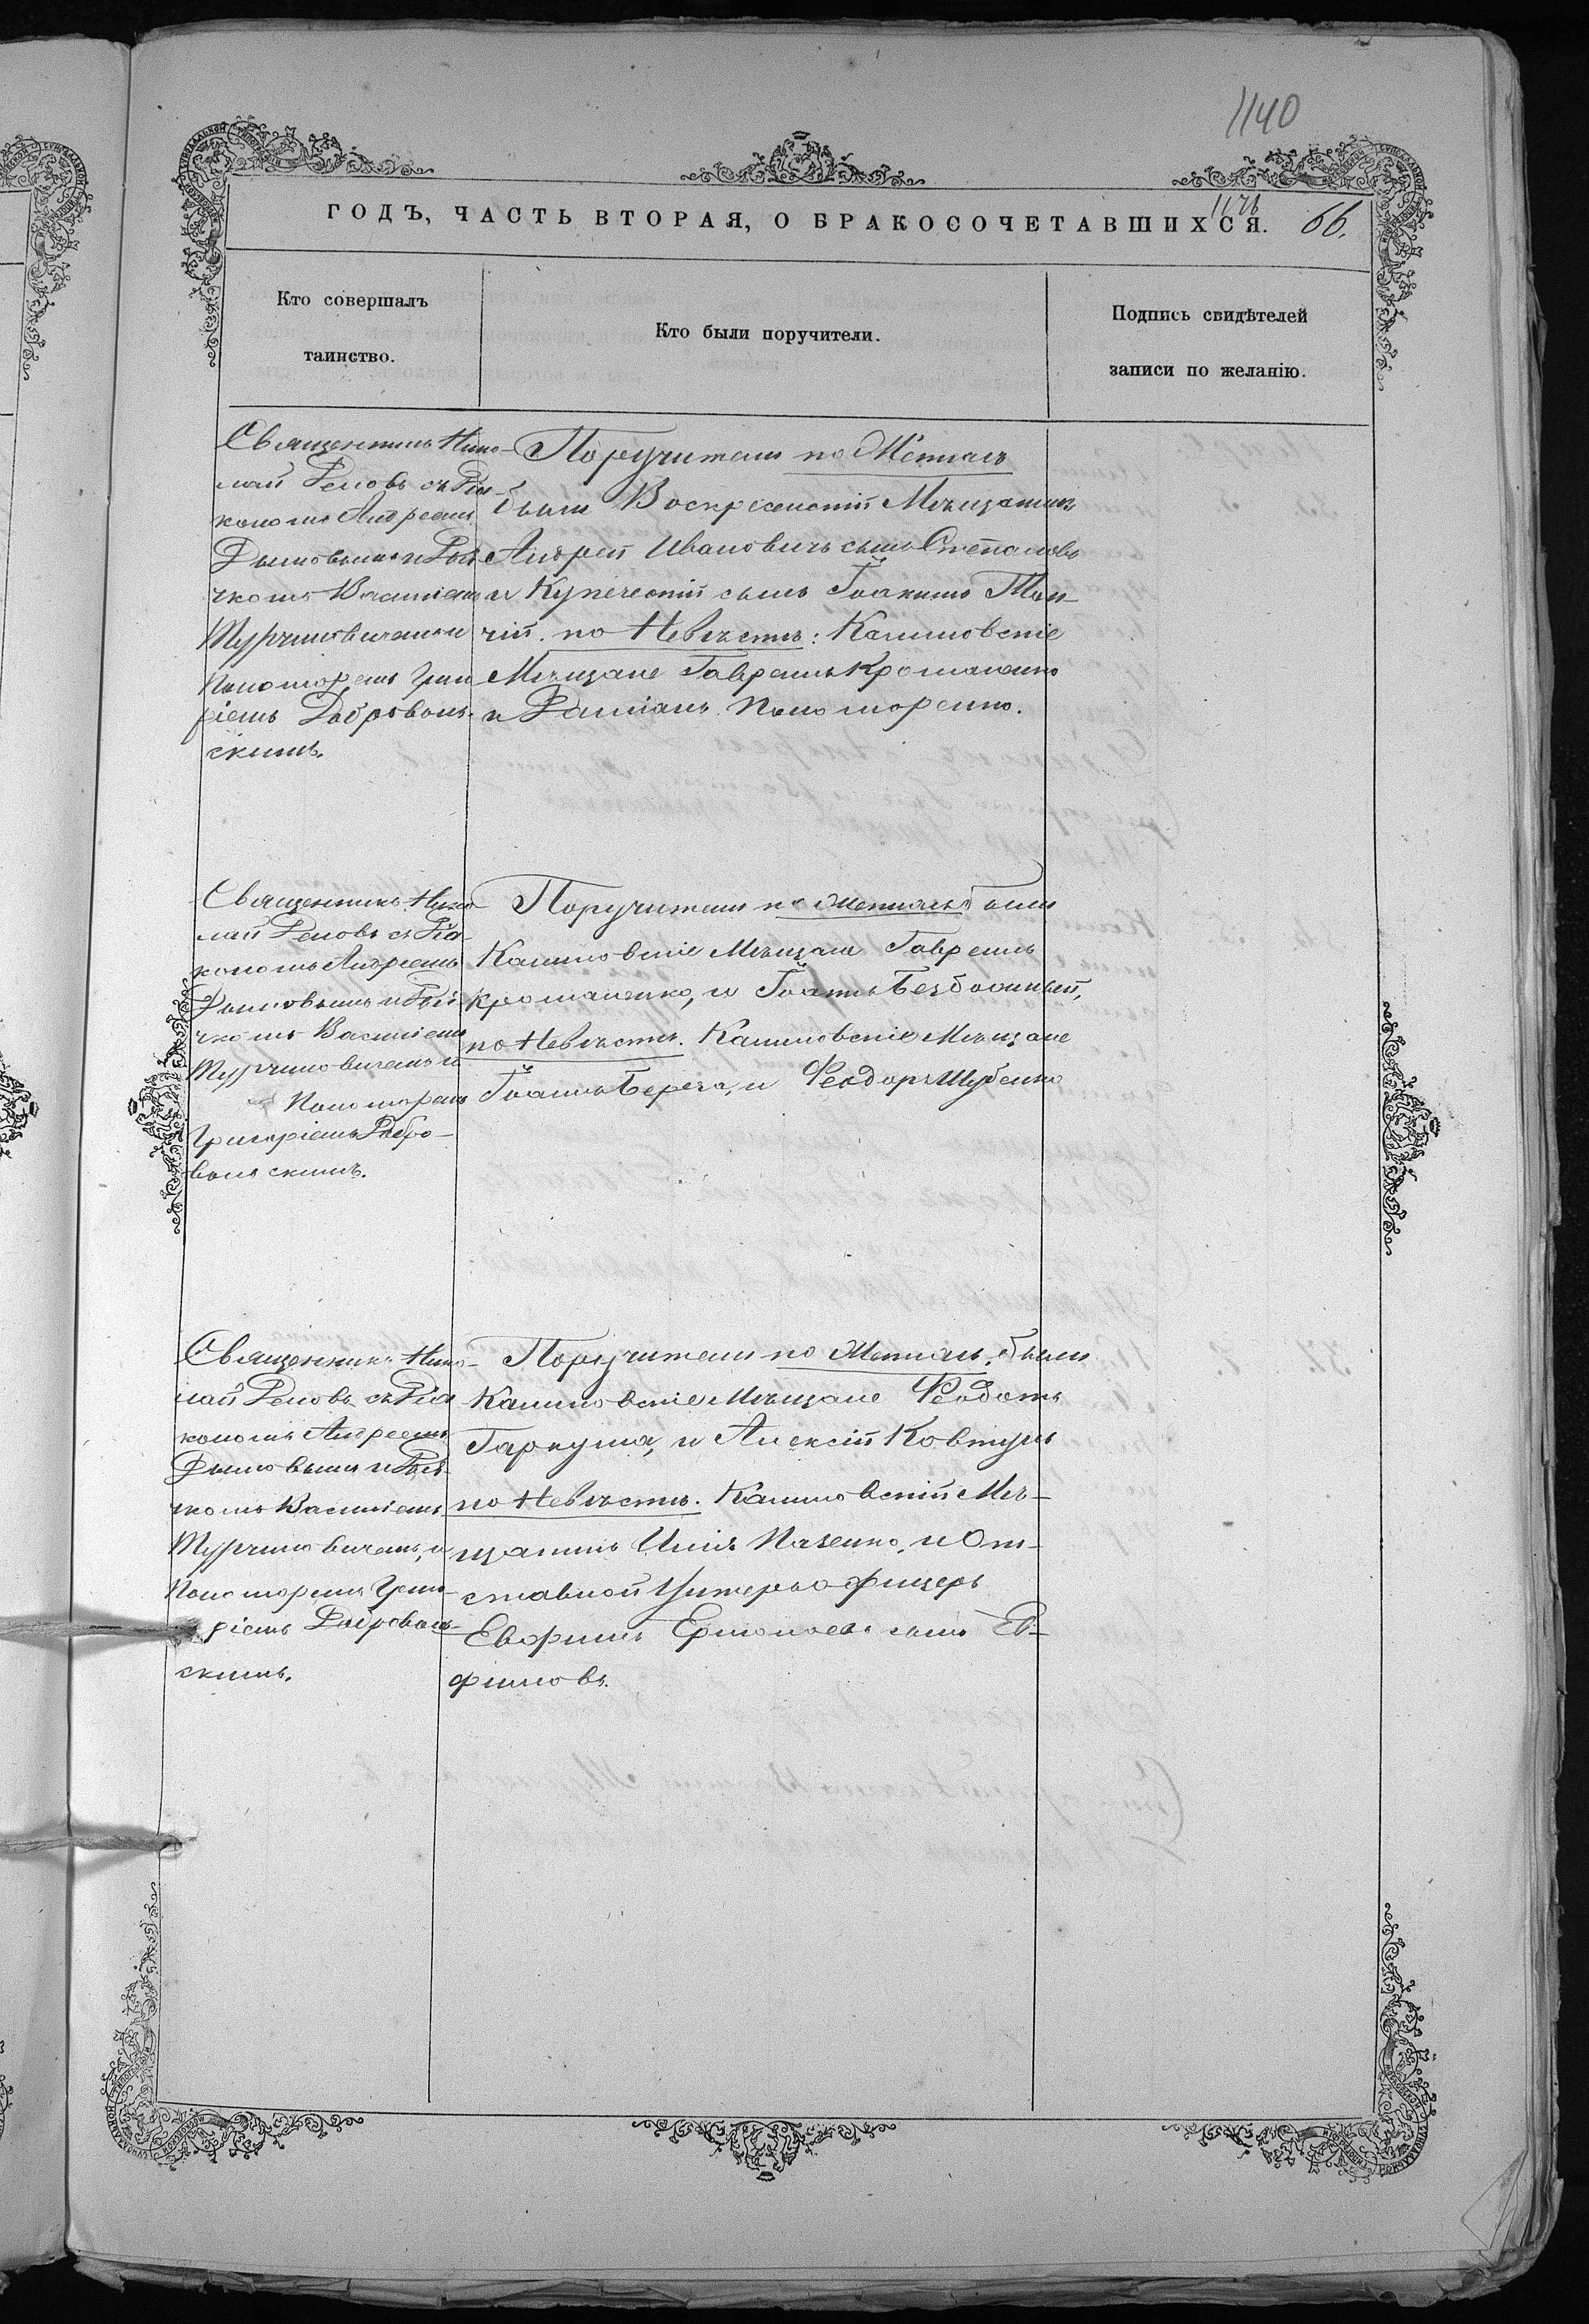 1140
ГОДЪ, ЧАСТЬ ВТОРАЯ, О БРАКОСОЧЕТАВШИХСЯ. 66.
Кто совершалъ
таинство.
Кто были поручители.
Подпись свидѣтелей
записи по желанію.
Священникъ Нико-
лай Деловъ съ Діа-
кономъ Андреемъ
Дьячкомъ Василіемъ
Турчиновичемъ и
Пономоремъ Гри
ріемъ Доброволь-
скимъ.
Поручители по Женихѣ
были Воскресенскій Мѣщанинъ
Андрей Ивановичъ сынъ Степановъ
и Купеческій сынъ Іоакимъ
по Невѣстѣ: Калиновскіе
Мѣщане Гавріилъ Кромаренко
и Даміанъ Пономоренко.
Священникъ Нико
лай Деловъ съ Діа-
кономъ Андреемъ
чкомъ Василіемъ
Турчиновичемъ и
Пономоремъ
Григоріемъ Добро-
вольскимъ.
Поручители по Женихѣ были
Калиновскіе Мѣщане Гавріилъ
и Іоаннъ
по Невѣстѣ. Калиновскіе Мѣщане
Іоаннъ Берега, и Феодоръ Шубенко
Священникъ Нико-
лай Деловъ съ Діа
кономъ Андреемъ
чкомъ Василіемъ
Турчиновичемъ, и
Пономоремъ Григо-
ріемъ Доброволь-
скимъ.
Поручители по Женихѣ. были
Калиновскіе Мѣщане Феодотъ
Гаркуша, и Алексій Ковтунъ
по Невѣстѣ. Калиновскій Мѣ-
щанинъ и От-
ставной Унтеръ-офицеръ
Евфимъ сынъ Ев-
фимовъ.